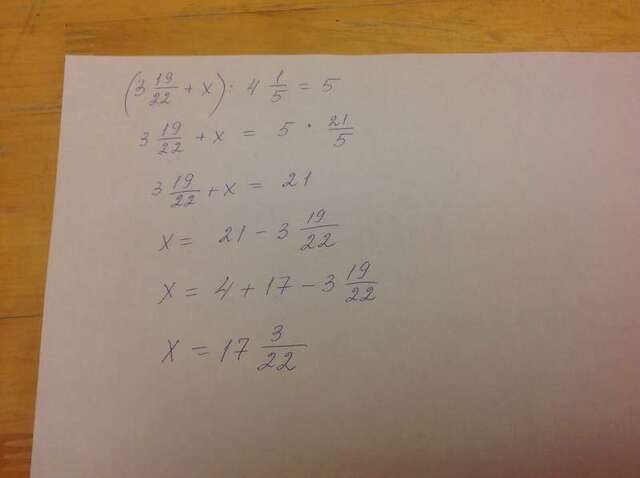 (3 19/22 + x) : 4 1/5 = 5
3 19/22 + x = 5 · 21/5
3 19/22 + x = 21
x = 21 - 3 19/22
x = 4 + 17 - 3 19/22
x = 17 3/22